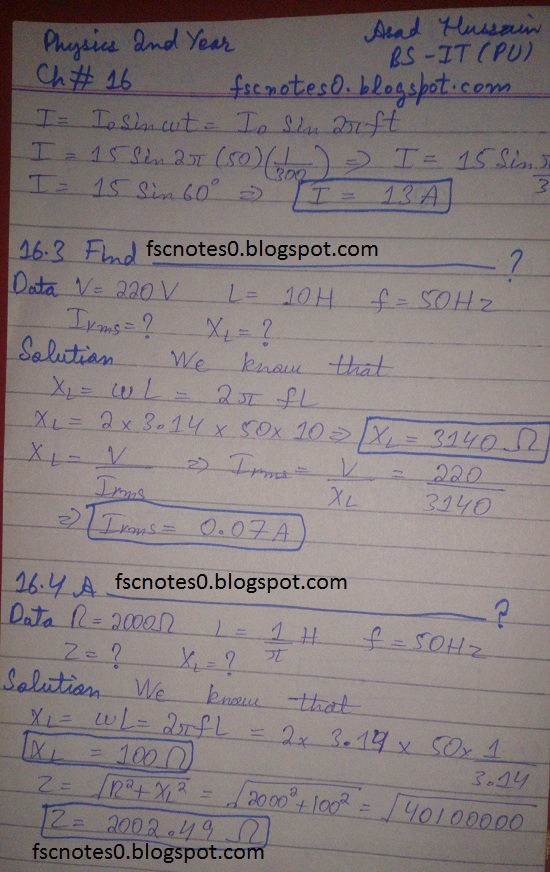 Physics 2nd Year Asad Hussain
BS-IT (PU)
Ch# 16 fscnotes0.blogspot.com
I = I₀ sin ωt = I₀ Sin 2πft
I = 15 Sin 2π (50) (1/300) ⇒ I = 15 Sin π/3
I = 15 Sin 60° ⇒ I = 13 A
16.3 Find fscnotes0.blogspot.com ?
Data V = 220 V L = 10H f = 50Hz
Irms = ? XL = ?
Solution We know that
XL = ωL = 2π fL
XL = 2 x 3.14 x 50 x 10 ⇒ XL = 3140 Ω
XL = V/Irms ⇒ Irms = V/XL = 220/3140
⇒ Irms = 0.07 A
16.4 A fscnotes0.blogspot.com ?
Data R = 2000Ω L = 1/π H f = 50Hz
Z = ? XL = ?
Solution We know that
XL = ωL = 2πfL = 2 x 3.14 x 50 x 1/3.14
XL = 100 Ω
Z = √R² + XL² = √2000² + 100² = √40100000
Z = 2002.49 Ω
fscnotes0.blogspot.com